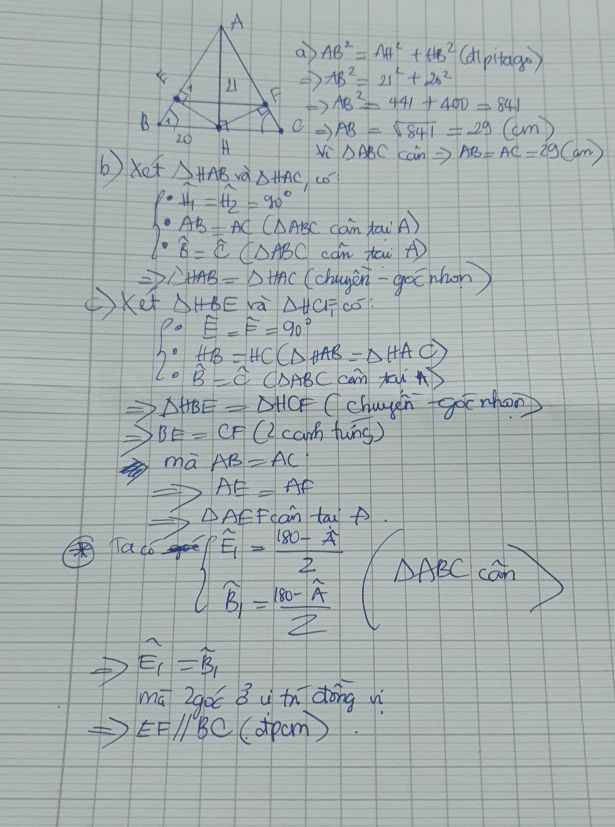 A
E
1
21
F
B
1
20
H
C
a) AB² = AH² + HB² (đlpitago)
=> AB² = 21² + 20²
=> AB² = 441 + 400 = 841
=> AB = √841 = 29 (cm)
Vì ΔABC cân => AB = AC = 29 (cm)
b) Xét ΔHAB và ΔHAC, có:
• Ĥ₁ = Ĥ₂ = 90°
• AB = AC (ΔABC cân tại A)
• B̂ = Ĉ (ΔABC cân tại A)
=> ΔHAB = ΔHAC (chuyền - góc nhọn)
c) Xét ΔHBE và ΔHCF, có:
• Ê = F̂ = 90°
• HB = HC (ΔHAB = ΔHAC)
• B̂ = Ĉ (ΔABC cân tại A)
=> ΔHBE = ΔHCF (chuyền - góc nhọn)
=> BE = CF (2 cạnh tứng)
mà AB = AC
=> AE = AF
=> ΔAEF cân tại A.
* Ta có Ê₁ = (180 - Â)/2
B̂₁ = (180 - Â)/2 (ΔABC cân)
=> Ê₁ = B̂₁
mà 2 góc ở vị trí đồng vị
=> EF // BC (đpcm).